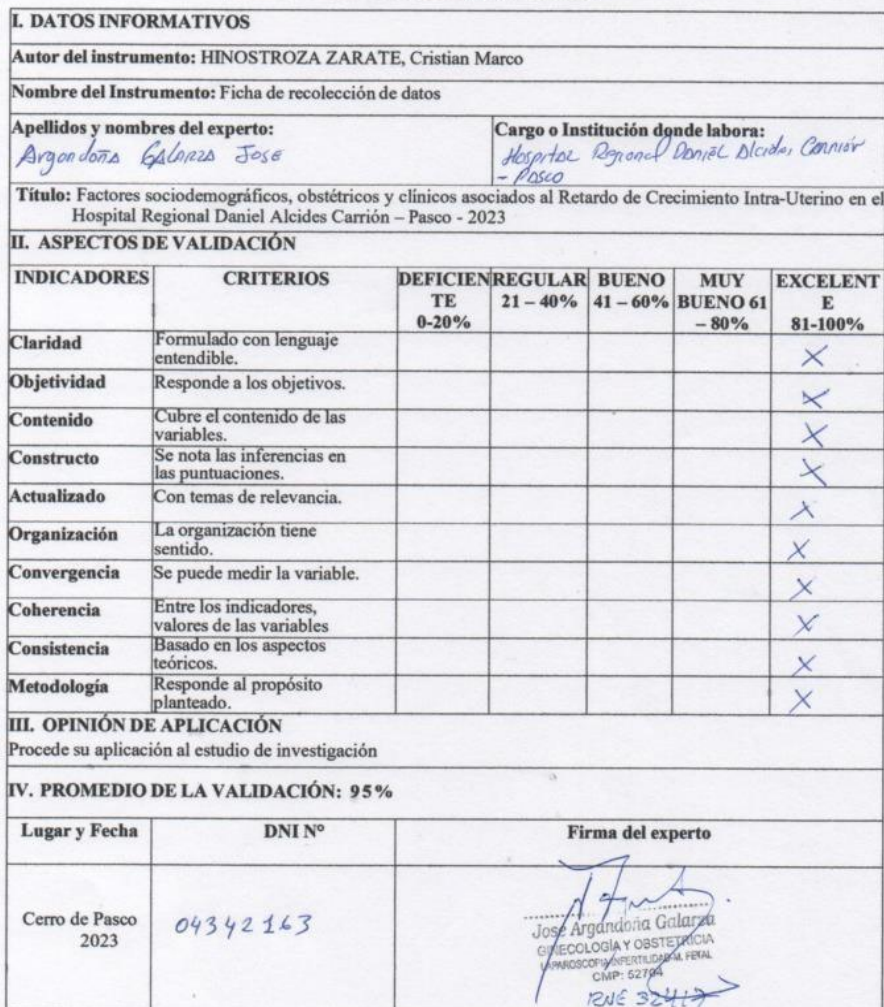 I. DATOS INFORMATIVOS
Autor del instrumento: HINOSTROZA ZARATE, Cristian Marco
Nombre del Instrumento: Ficha de recolección de datos
Apellidos y nombres del experto:
Argandoña Galarza José
Cargo o Institución donde labora:
Hospital Regional Daniel Alcides Carrión
- Pasco
Título: Factores sociodemográficos, obstétricos y clínicos asociados al Retardo de Crecimiento Intra-Uterino en el
Hospital Regional Daniel Alcides Carrión – Pasco - 2023
II. ASPECTOS DE VALIDACIÓN
INDICADORES CRITERIOS DEFICIENTE 0-20% REGULAR 21 – 40% BUENO 41 – 60% MUY BUENO 61 – 80% EXCELENTE 81-100%
Claridad Formulado con lenguaje entendible. X
Objetividad Responde a los objetivos. X
Contenido Cubre el contenido de las variables. X
Constructo Se nota las inferencias en las puntuaciones. X
Actualizado Con temas de relevancia. X
Organización La organización tiene sentido. X
Convergencia Se puede medir la variable. X
Coherencia Entre los indicadores, valores de las variables X
Consistencia Basado en los aspectos teóricos. X
Metodología Responde al propósito planteado. X
III. OPINIÓN DE APLICACIÓN
Procede su aplicación al estudio de investigación
IV. PROMEDIO DE LA VALIDACIÓN: 95%
Lugar y Fecha DNI N° Firma del experto
Cerro de Pasco
2023
04342163
José Argandoña Galarza
GINECOLOGÍA Y OBSTETRICIA
LAPAROSCOPIA INFERTILIDAD M. FETAL
CMP: 52704
RNE 32417